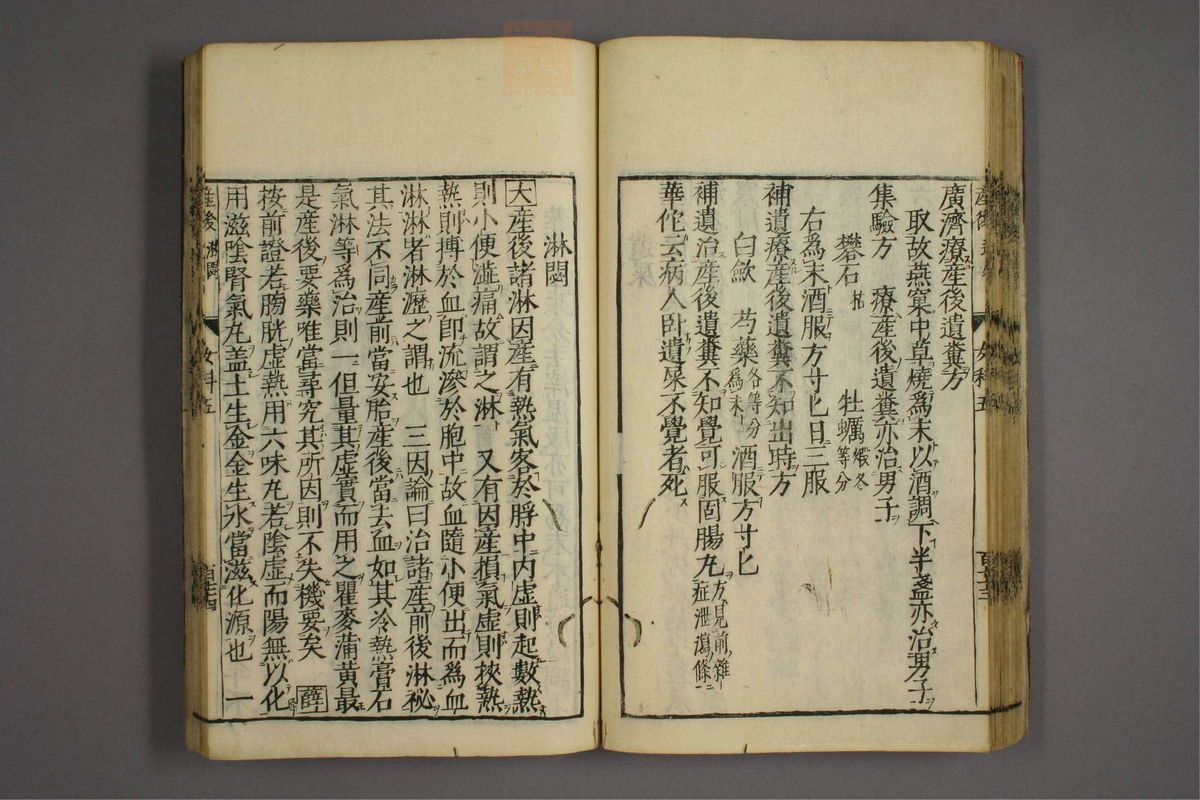 廣濟療産後遺糞方
取故燕窠中草燒爲末以酒調下半盞亦治男子
集驗方　療産後遺糞亦治男子
礬石枯　牡蠣煅各等分
右爲末酒服方寸匕日三服
補遺療産後遺糞不知出時方
白歛　芍藥各等分爲末酒服方寸匕
補遺治産後遺糞不知覺可服固腸丸方見前雜症泄瀉條
華佗云病人卧遺屎不覺者死
淋閟
大産後諸淋因産有熱氣客於脬中内虚則起數熱
則小便澁痛故謂之淋　又有因産損氣虚則挾熱
熱則搏於血即流滲於胞中故血隨小便出而爲血
淋淋者淋瀝之謂也　三因論曰治諸産前後淋秘
其法不同産前當安胎産後當去血如其冷熱膏石
氣淋等爲治則一但量其虚實而用之瞿麥蒲黄最
是産後要藥唯當尋究其所因則不失機要矣　薛
按前證若膀胱虚熱用六味丸若陰虚而陽無以化
用滋陰腎氣丸盖土生金金生水當滋化源也　一
産後　淋閟
女科五
百三十四